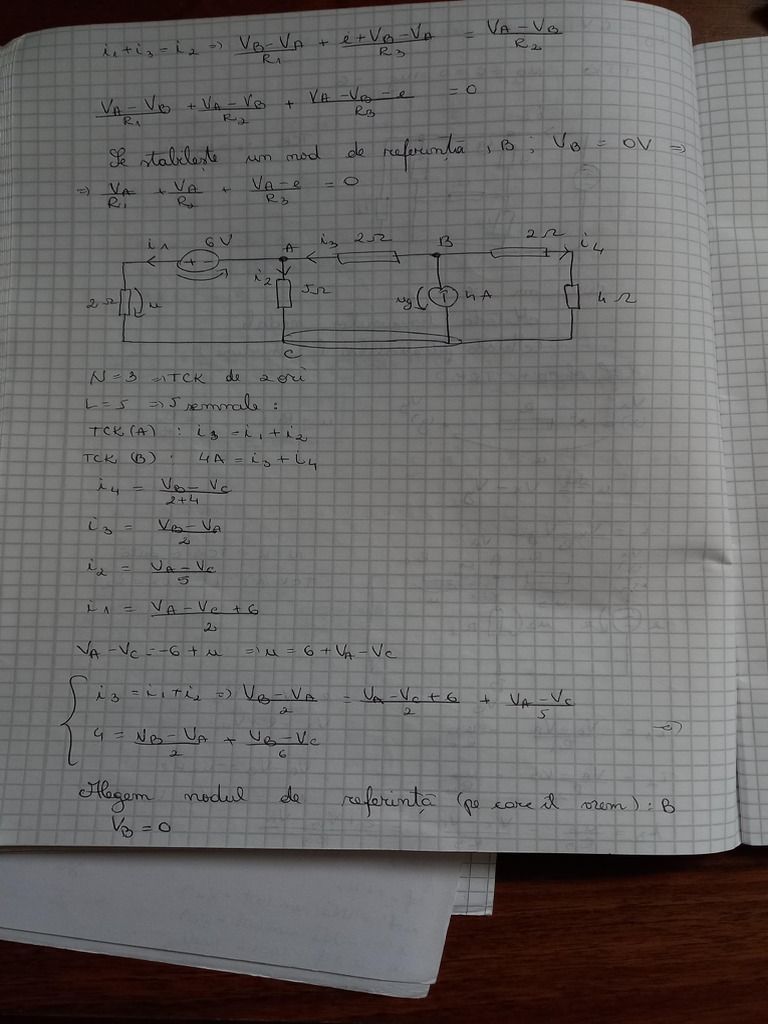 i₁ + i₃ = i₂ => (V_B - V_A)/R₁ + (e + V_B - V_A)/R₃ = (V_A - V_B)/R₂
(V_A - V_B)/R₁ + (V_A - V_B)/R₂ + (V_A - V_B - e)/R₃ = 0
Se stabilește un nod de referință, B; V_B = 0V =>
=> V_A/R₁ + V_A/R₂ + (V_A - e)/R₃ = 0
i₁ 6V A i₃ 2Ω B 2Ω i₄
+ -
2Ω u i₂ 5Ω ug 4A 4Ω
C
N=3 => TCK de 2 ori
L=5 => 5 semnale :
TCK(A) : i₃ = i₁ + i₂
TCK (B) : 4A = i₃ + i₄
i₄ = (V_B - V_C)/(2+4)
i₃ = (V_B - V_A)/2
i₂ = (V_A - V_C)/5
i₁ = (V_A - V_C + 6)/2
V_A - V_C = -6 + u => u = 6 + V_A - V_C
{ i₃ = i₁ + i₂ => (V_B - V_A)/2 = (V_A - V_C + 6)/2 + (V_A - V_C)/5
4 = (V_B - V_A)/2 + (V_B - V_C)/6 =>
Alegem nodul de referință (pe care îl vrem) : B
V_B = 0